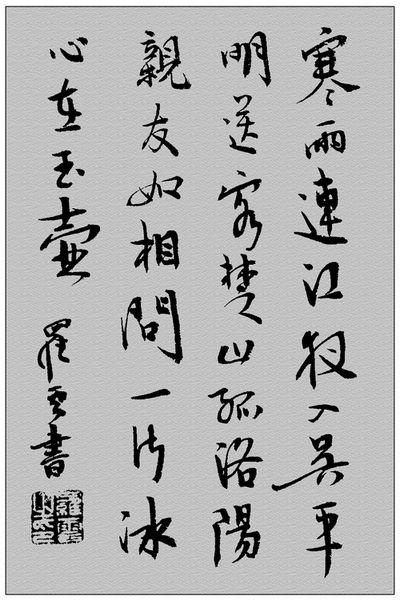 寒雨連江夜入吳平
明送客楚山孤洛陽
親友如相問一片冰
心在玉壺
書